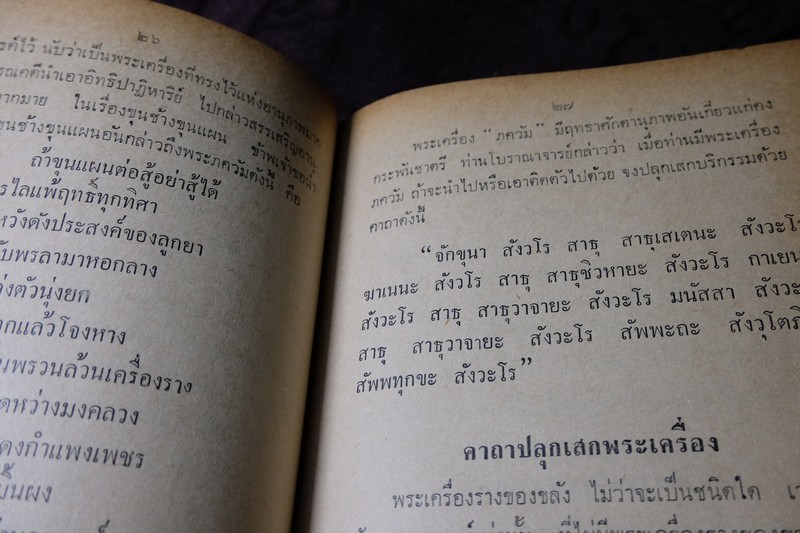 ๒๖
รค์ไว้ นับว่าเป็นพระเครื่องที่ทรงไว้แห่งอานุภาพมาก
รณคดีนำเอาอิทธิปาฏิหาริย์ ไปกล่าวสรรเสริญอานุ-
มากมาย ในเรื่องขุนช้างขุนแผน ข้าพเจ้าขอนำ
ขุนช้างขุนแผนอันกล่าวถึงพระภควัมดังนี้ คือ
ถ้าขุนแผนต่อสู้อย่าสู้ได้
รไลแพ้ฤทธิ์ทุกทิศา
หวังดังประสงค์ของลูกยา
ับพรลามาหอกลาง
ต่งตัวนุ่งยก
แล้วโจงหาง
นพรวนล้วนเครื่องราง
ดหว่างมงคลวง
ดงกำแพงเพชร
๒๗
พระเครื่อง “ภควัม” มีฤทธาศักดานุภาพอันเกี่ยวแก่คง
กระพันชาตรี ท่านโบราณาจารย์กล่าวว่า เมื่อท่านมีพระเครื่อง
ภควัม ถ้าจะนำไปหรือเอาติดตัวไปด้วย จงปลุกเสกบริกรรมด้วย
คาถาดังนี้
“จักขุนา สังวโร สาธุ สาธุเสเตนะ สังวะโร
ฆาเนนะ สังวโร สาธุ สาธุชิวหายะ สังวะโร กาเยน
สังวะโร สาธุ สาธุวาจายะ สังวะโร มนัสสา สังวะ
สาธุ สาธุวาจายะ สังวะโร สัพพะถะ สังวุโตภิ
สัพพทุกขะ สังวะโร”
คาถาปลุกเสกพระเครื่อง
พระเครื่องรางของขลัง ไม่ว่าจะเป็นชนิดใด เ